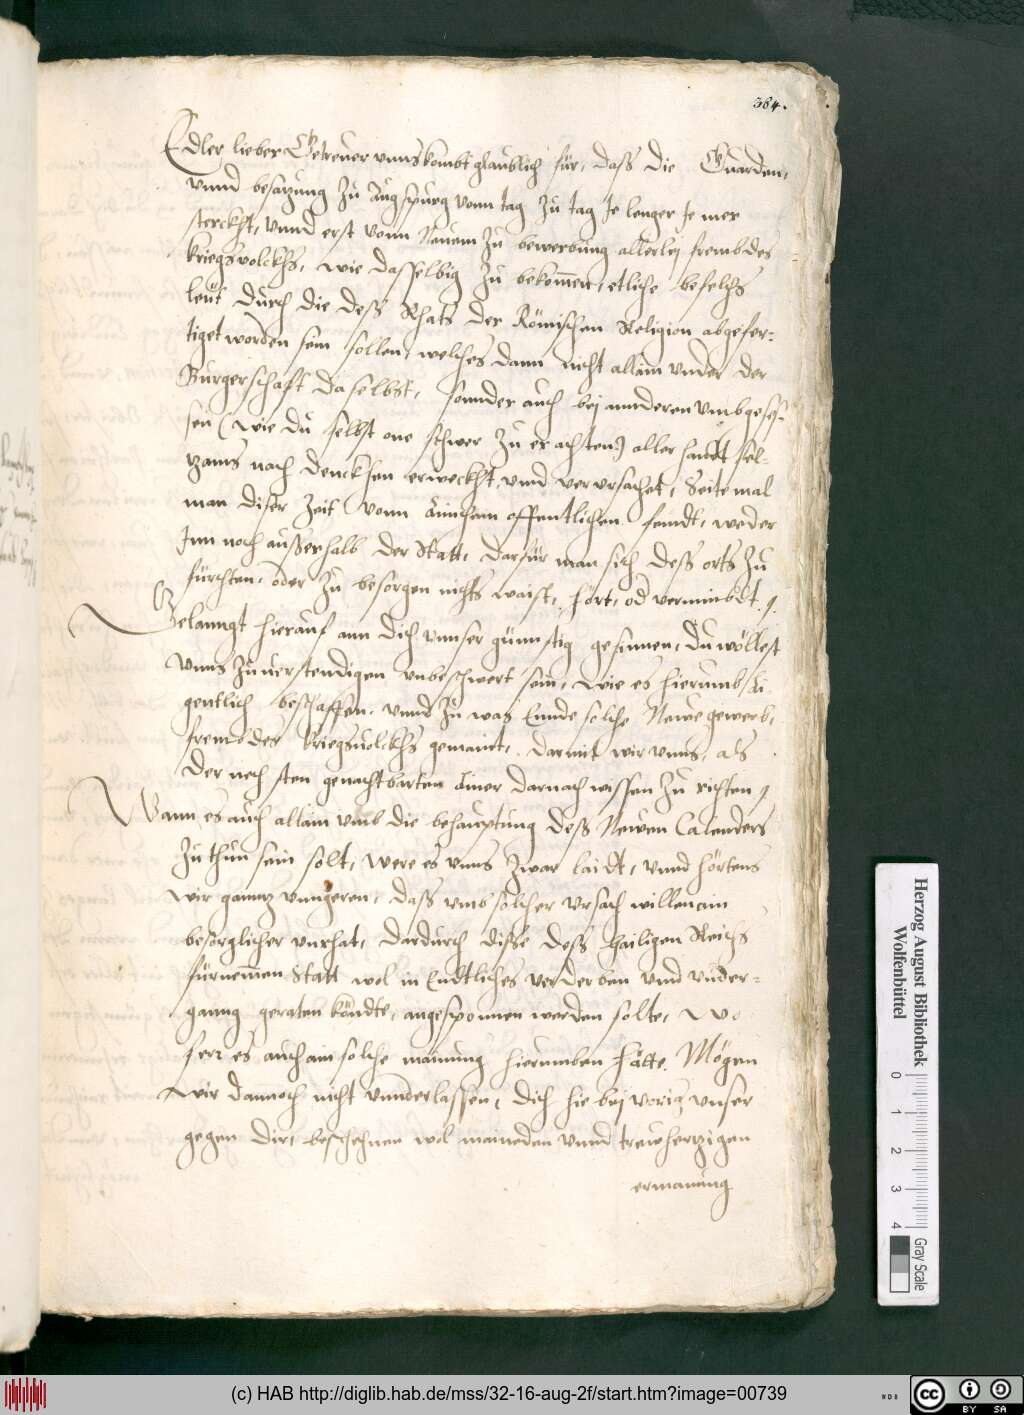 364.
Edler lieber Getreuer vnns kombt glaublich für, dass die Guarden,
vnnd besatzung zu Augspurg vonn tag zu tag Je lenger Je mer
sterckht, vnnd erst vonn Neuem zu bewerbung allerley frembdes
kriegsvolckhs, wie dasselbig zu bekommen, etliche befelchs
leüt durch die dess Rhats der Römischen Religion abgefer-
tiget worden sein sollen, welches dann nicht allain vnder der
Burgerschafft daselbst, sonnder auch bej annderen vmbgeses-
sen (wie du selbst one schwer zu erachten) allerhandt sel-
tzams nach denckhen erweckht, vnnd verursachet, Seitemal
man diser Zeit vonn ainichem offentlichen feindt, weder
Inn noch ausserhalb der Statt, darfür man sich dess orts zu
fürchten, oder zu besorgen nichts waist, hört, od vernimbdt /.
Gelanngt hierauf ann dich vnnser günnstig gesinnen, du wöllest
vnns zuuerstendigen vnbeschwert sein, wie es hierumb ai-
gentlich beschaffen, vnnd zu was Ennde solche Newe gewerb,
frembdes kriegsvolckhs gemaint, darmit wir vnns, als
der nechsten genachtbarten ainer darnach wissen zu richten /.
Wann es auch allain vmb die behauptung dess Newen Calenders
zu thun sein solt, were es vnns zwar laidt, vnnd hörtens
wir ganntz vnngeren, dass vmb solcher vrsach willen ain
besorglicher vnrhat, dardurch disse dess hailigen Reichs
fürnemen Statt wol in Endtliches verderben vnnd vnder-
ganng geraten köndte, angesponnen werden solte, Wo
ferr es auch ain solche mainung hierumben hätte. Mögen
wir dannoch nicht vnnderlassen, dich hie bej vorig vnser
gegen dir, beschehnen wol mainenden vnnd trewhertzigen
ermanung
Herzog August Bibliothek
Wolfenbüttel
0 1 2 3 4
Gray Scale
(c) HAB http://diglib.hab.de/mss/32-16-aug-2f/start.htm?image=00739
WDB
cc BY SA